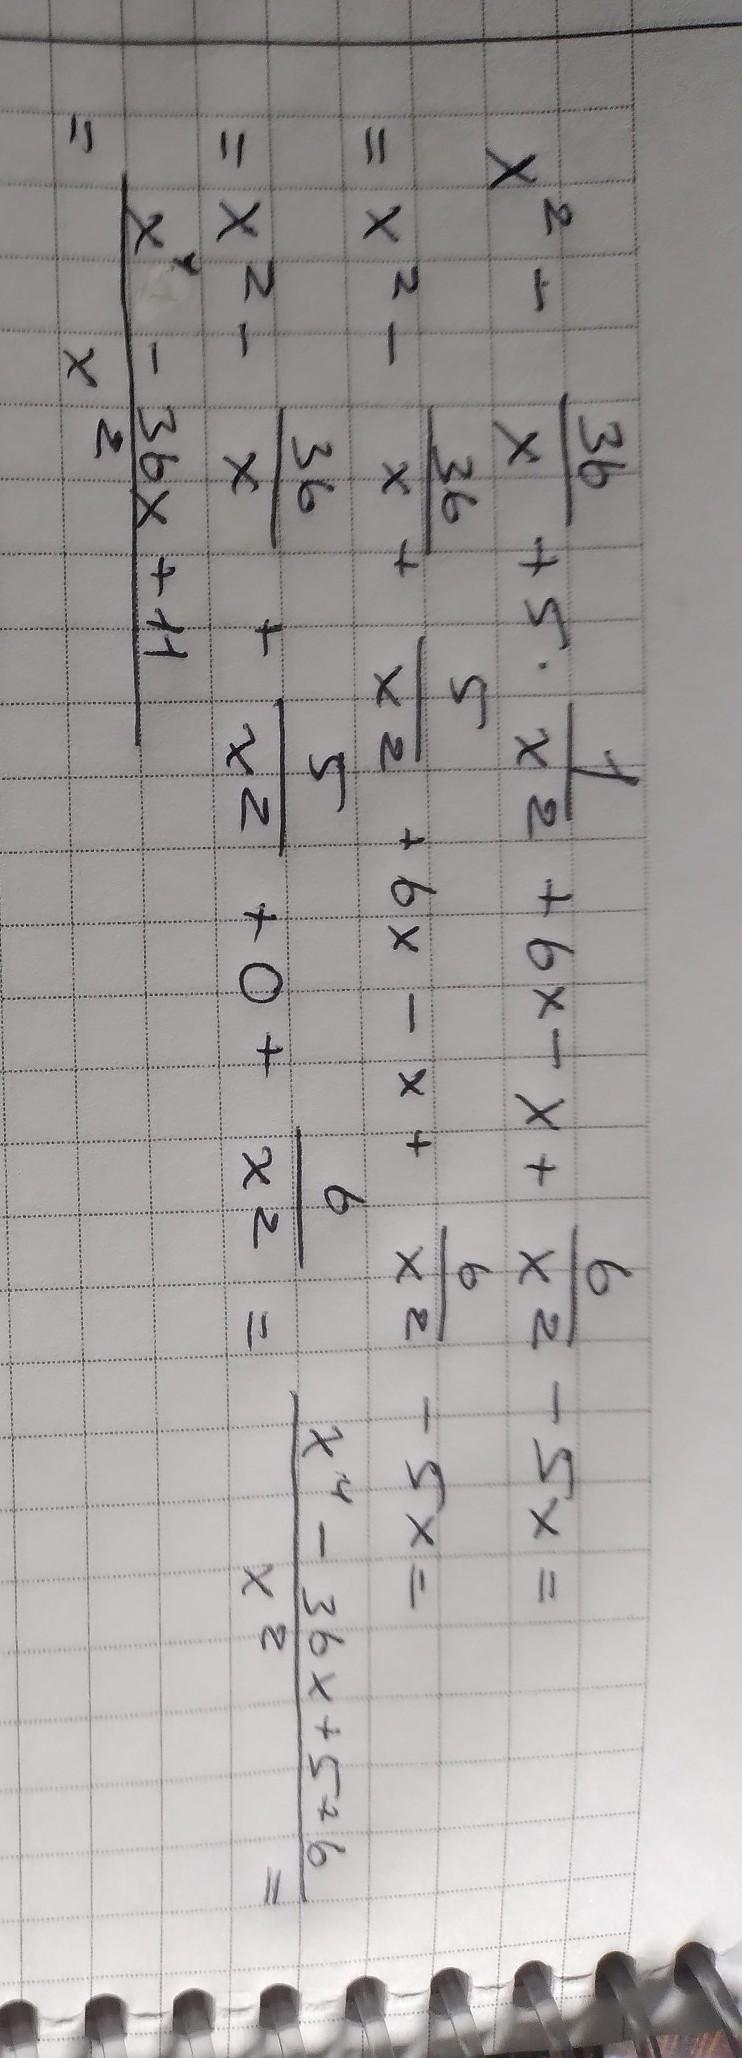 x² - 36/x + 5 · 1/x² + 6x - x + 6/x² - 5x =
= x² - 36/x + 5/x² + 6x - x + 6/x² - 5x =
= x² - 36/x + 5/x² + 0 + 6/x² = (x⁴ - 36x + 5 + 6)/x² =
= (x⁴ - 36x + 11)/x²